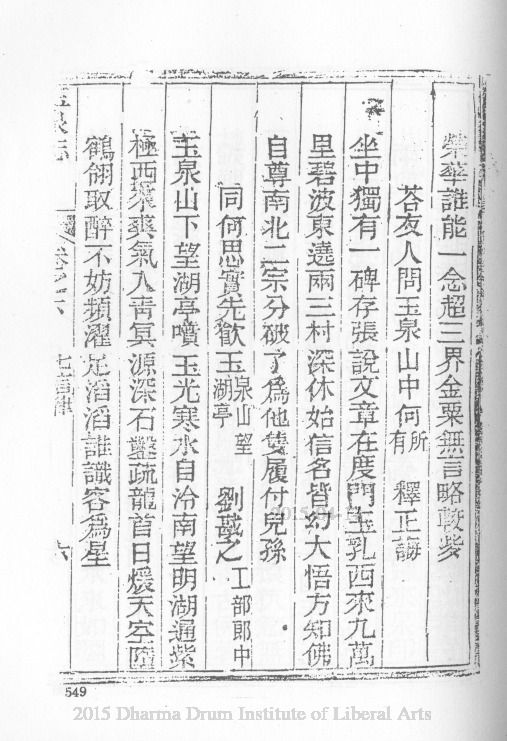 榮華誰能一念超三界金粟無言略
荅友人問玉泉山中何所有 釋正誨
坐中獨有一碑存張說文章在度門玉乳西來九萬
里碧波東遶兩三村深休始信名皆幻大悟方知佛
自尊南北二宗分破了為他隻履付兒孫
同何思實先歡玉泉山望湖亭 劉戡之工部郎中
玉泉山下望湖亭噴玉光寒水自泠南望明湖通紫
極西來爽氣入靑冥源深石鑿疏龍首日煖天空
鶴翎取醉不妨頻濯足滔滔誰識客為星
玉泉志 卷之六 七言律 六
549
2015 Dharma Drum Institute of Liberal Arts